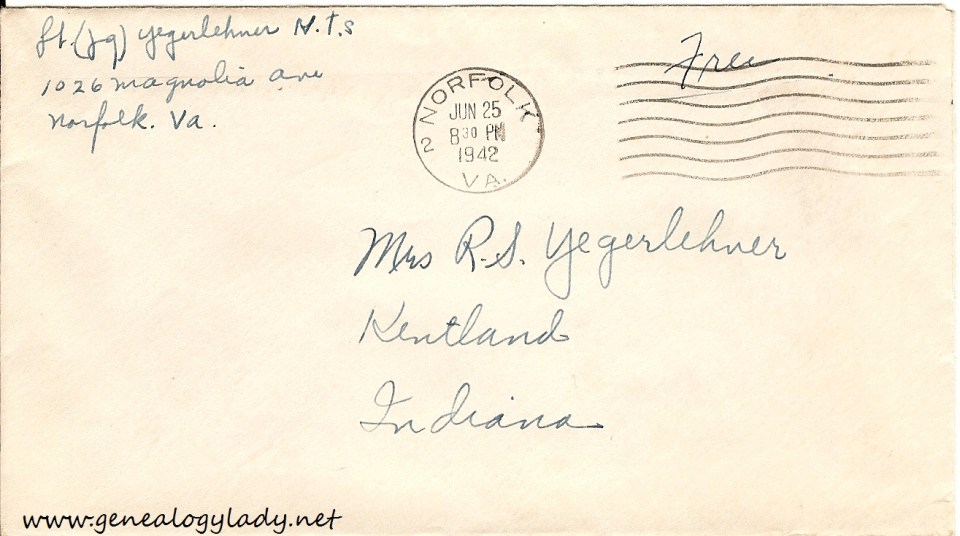 Lt. (jg) Yegerlehner N.T.S
1026 Magnolia Ave
Norfolk. Va.
Free
NORFOLK
JUN 25
8 30 PM
1942
2
VA.
Mrs R.S. Yegerlehner
Kentland
Indiana
www.genealogylady.net